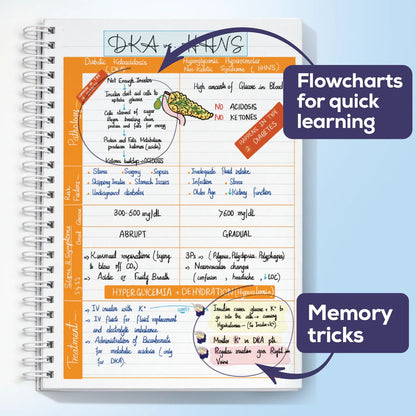 DKA vs. HHNS
Diabetic Ketoacidosis
(DKA)
Hyperglycemic Hyperosmolar
Non-Ketotic Syndrome (HHNS)
Pathology
Not Enough Insulin
Insulin shut and cells to
uptake glucose
Cells starved of sugar
Began breaking down
protein and fats for energy
Protein and Fats Metabolism
produces ketones (acids)
Ketones buildup → ACIDOSIS
High amounts of Glucose in Blood
NO ACIDOSIS
NO KETONES
HAPPENS IN TYPE
2 DIABETES
Risk
Factors
• Stress • Surgery • Sepsis
• Skipping Insulin • Stomach Issues
• Undiagnosed diabetes
• Inadequate fluid intake
• Infection • Stress
• Older Age • ↓ Kidney function
Glucose
300-500 mg/dL
>600 mg/dL
Onset
ABRUPT
GRADUAL
Signs & Symptoms
→ Kussmaul respirations (trying
to blow off CO₂)
→ Acidic or Fruity Breath
→ 3P's → (Polyuria, Polydipsia, Polyphagia)
→ Neuromuscular changes
(confusion, headache, ↓LOC)
HYPERGLYCEMIA + DEHYDRATION
Treatment
→ IV insulin with K⁺
→ IV fluid for fluid replacement
and electrolyte imbalance
→ Administration of Bicarbonate
for metabolic acidosis (only
for DKA).
Insulin causes glucose + K⁺ to
go into the cells → causing
Hypokalemia
Monitor K⁺ in DKA pts.
Regular insulin goes Right in
Veins
Flowcharts
for quick
learning
Memory
tricks